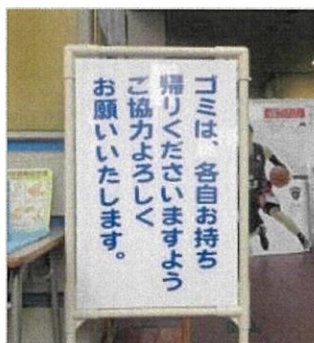 ゴミは、各自お持ち
帰りくださいますよう
ご協力よろしく
お願いいたします。